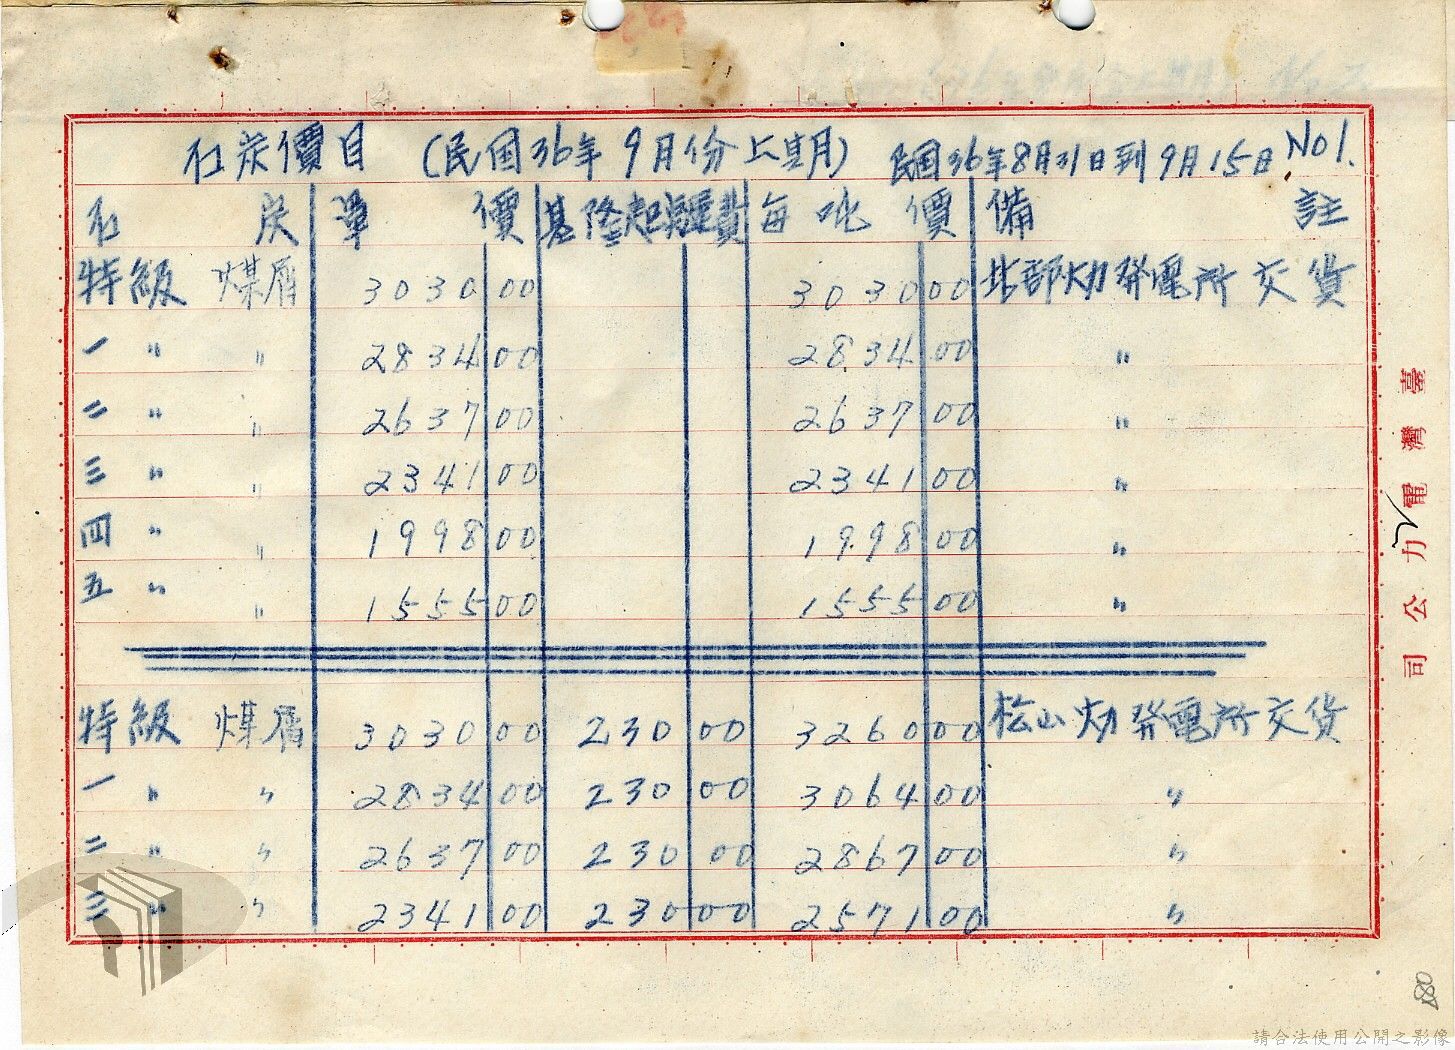 石炭價目 (民国36年9月份上期) 民国36年8月31日到9月15日 NO1.
石炭 單價 基隆起運費 每吨價 備註
特級 煤屑 3030 00 3030 00 北部火力発電所交货
一 〃 〃 2834 00 2834 00 〃
二 〃 〃 2637 00 2637 00 〃
三 〃 〃 2341 00 2341 00 〃
四 〃 〃 1998 00 1998 00 〃
五 〃 〃 1555 00 1555 00 〃
特級 煤屑 3030 00 230 00 3260 00 松山火力発電所交货
一 〃 〃 2834 00 230 00 3064 00 〃
二 〃 〃 2637 00 230 00 2867 00 〃
三 〃 〃 2341 00 230 00 2571 00 〃
臺灣電力公司
180
請合法使用公開之影像